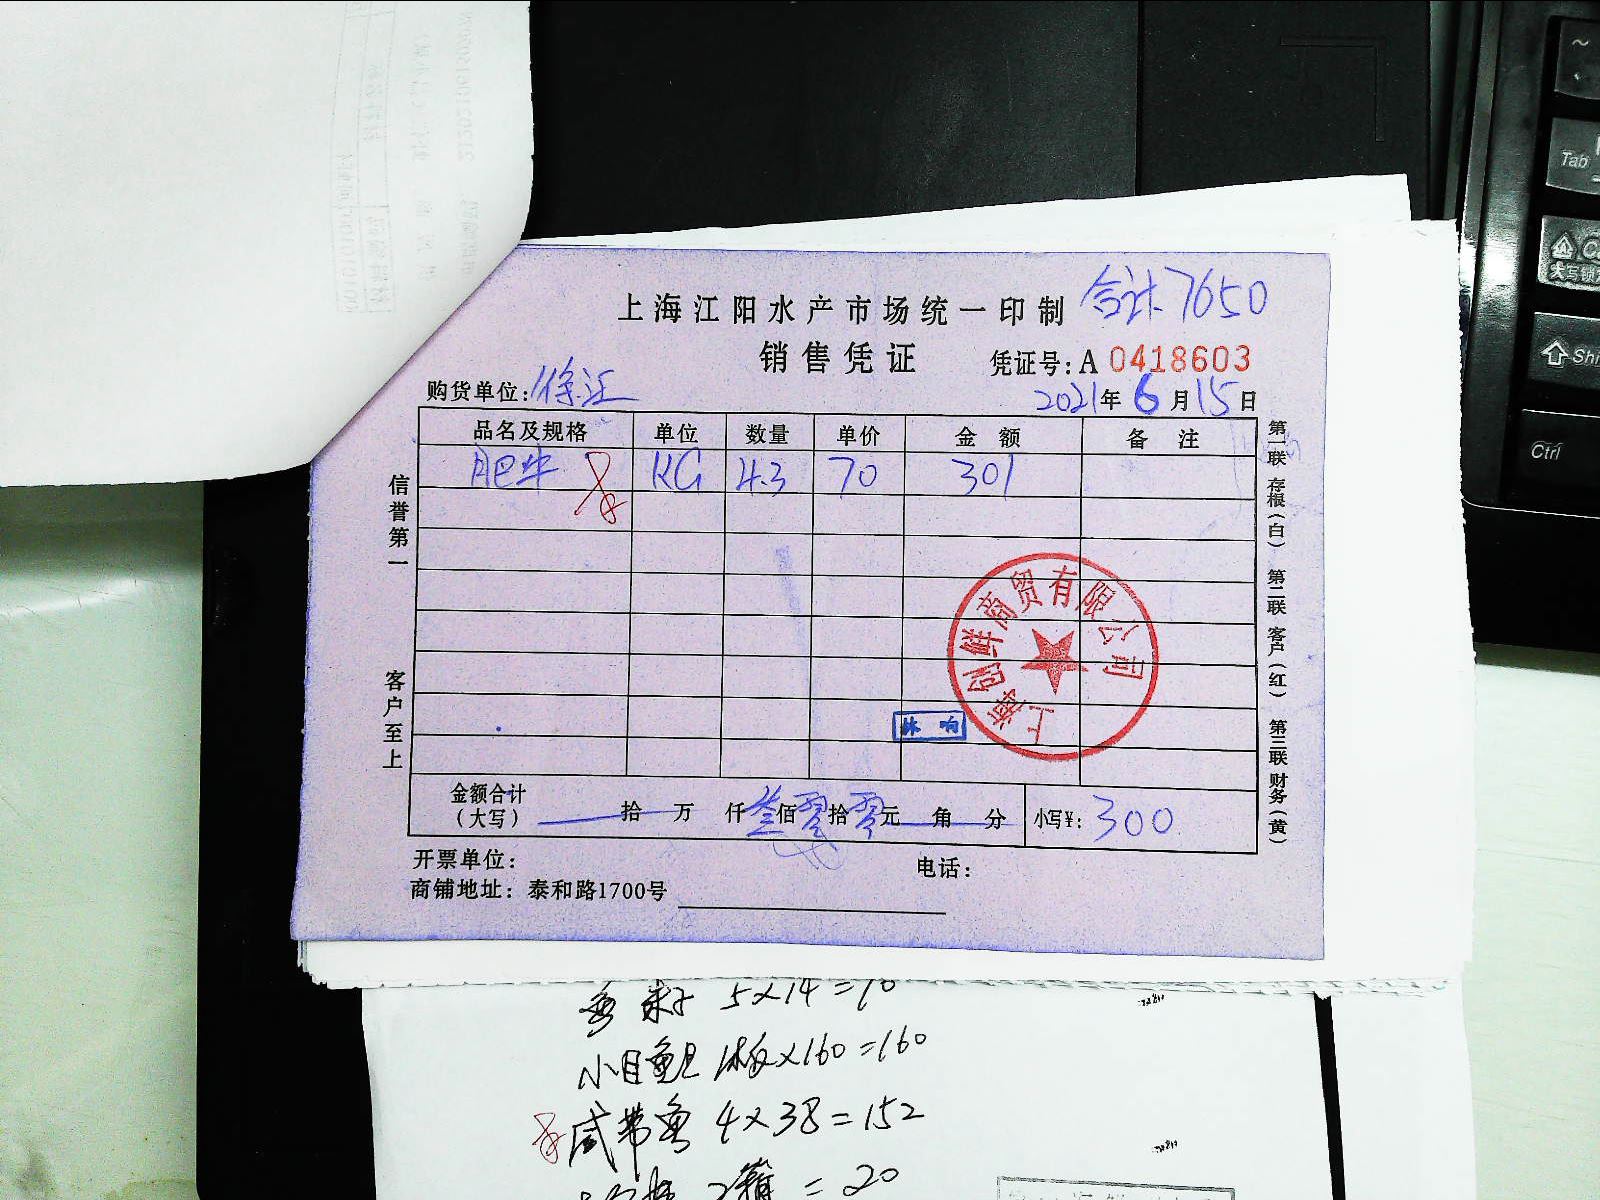 上海江阳水产市场统一印制 合计7650
销售凭证 凭证号:A 0418603
购货单位:徐汇 2021年6月15日
品名及规格 单位 数量 单价 金额 备注
肥牛 KG 4.3 70 301
信誉第一
客户至上
第一联 存根(白) 第二联 客户(红) 第三联 财务(黄)
上海创鲜商贸有限公司
金额合计(大写) 拾万仟叁佰零拾零元角分 小写¥: 300
开票单位: 电话:
商铺地址: 泰和路1700号
5×14=70
小目鱼 1板×160=160
咸带鱼 4×38=152
2箱=20
Tab
大写锁
Shi
Ctrl